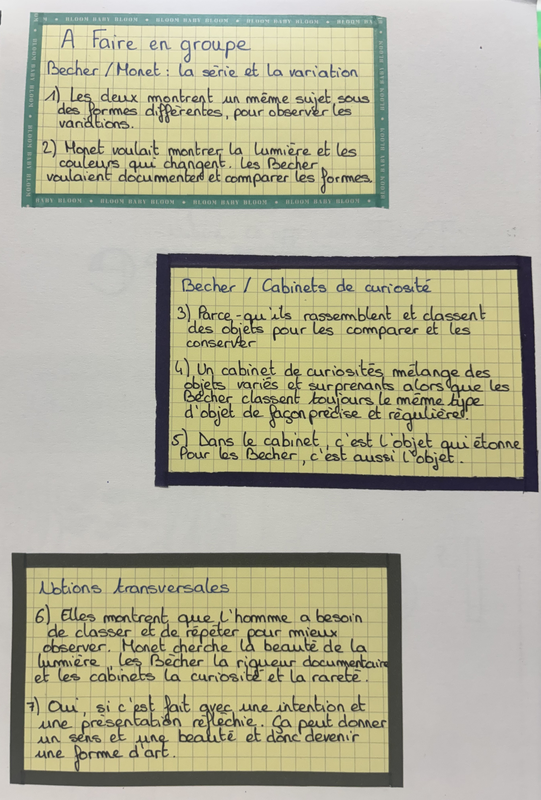 BLOOM BABY BLOOM ★ BLOOM BABY BLOOM ★ BLOOM BABY BLOOM
A Faire en groupe
Becher / Monet : la série et la variation
1) Les deux montrent un même sujet sous
des formes différentes, pour observer les
variations.
2) Monet voulait montrer la lumière et les
couleurs qui changent. Les Becher
voulaient documenter et comparer les formes.
BABY BLOOM ★ BLOOM BABY BLOOM ★ BLOOM BABY BLOOM ★ BLOOM BABY BLOOM
Becher / Cabinets de curiosité
3) Parce-qu'ils rassemblent et classent
des objets pour les comparer et les
conserver
4) Un cabinet de curiosités mélange des
objets variés et surprenants alors que les
Becher classent toujours le même type
d'objet de façon précise et régulière.
5) Dans le cabinet, c'est l'objet qui étonne
Pour les Becher, c'est aussi l'objet.
Notions transversales
6) Elles montrent que l'homme a besoin
de classer et de répéter pour mieux
observer. Monet cherche la beauté de la
lumière, les Bécher la rigueur documentaire
et les cabinets la curiosité et la rareté.
7) Oui, si c'est fait avec une intention et
une présentation réfléchie. Ça peut donner
un sens et une beauté et donc devenir
une forme d'art.